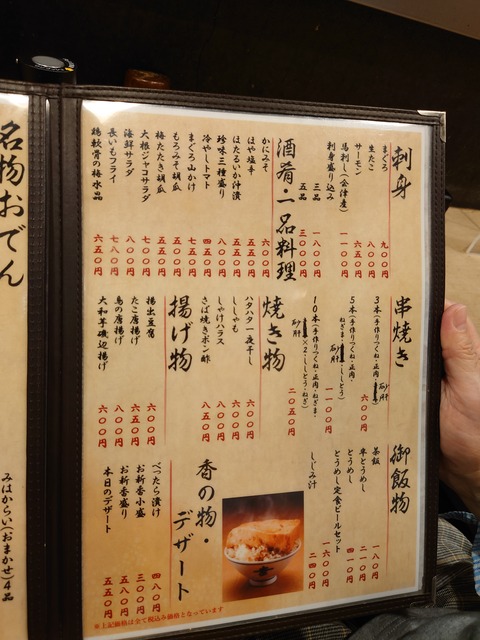 刺身
まぐろ 九〇〇円
生たこ 八〇〇円
サーモン 六五〇円
馬刺し(会津産) 一一〇〇円
刺身盛り込み
三品 一八〇〇円
五品 三〇〇〇円
酒肴・一品料理
かにみそ 六〇〇円
ほや塩辛 五五〇円
ほたるいか沖漬 五五〇円
珍味三種盛り 八〇〇円
冷やしトマト 四五〇円
まぐろ山かけ 八〇〇円
もろみそ胡瓜 五〇〇円
梅たたき胡瓜 五五〇円
大根ジャコサラダ 七〇〇円
海鮮サラダ 八〇〇円
長いもフライ 七八〇円
鶏軟骨の梅水晶 六五〇円
串焼き
3本(手作りつくね・正肉・砂肝) 六〇〇円
5本(手作りつくね・正肉・ねぎま・砂肝・ししとう) 一一〇〇円
10本(手作りつくね・正肉・ねぎま・砂肝×2・ししとう・ねぎ) 二〇五〇円
焼き物
ハタハタ一夜干し 六〇〇円
ししゃも 六〇〇円
しゃけハラス 八〇〇円
さば焼きポン酢 八五〇円
揚げ物
揚出豆腐 六〇〇円
たこ唐揚げ 六五〇円
鳥の唐揚げ 八〇〇円
大和芋磯辺揚げ 六〇〇円
御飯物
茶飯 一八〇円
半とうめし 二一〇円
とうめし 四一〇円
とうめし定食ビールセット 一六〇〇円
しじみ汁 二四〇円
香の物・デザート
べったら漬け 四八〇円
お新香小盛 三〇〇円
お新香盛り 五八〇円
本日のデザート 五五〇円
※上記価格は全て税込み価格となっています
名物おでん
みはからい(おまかせ)4品